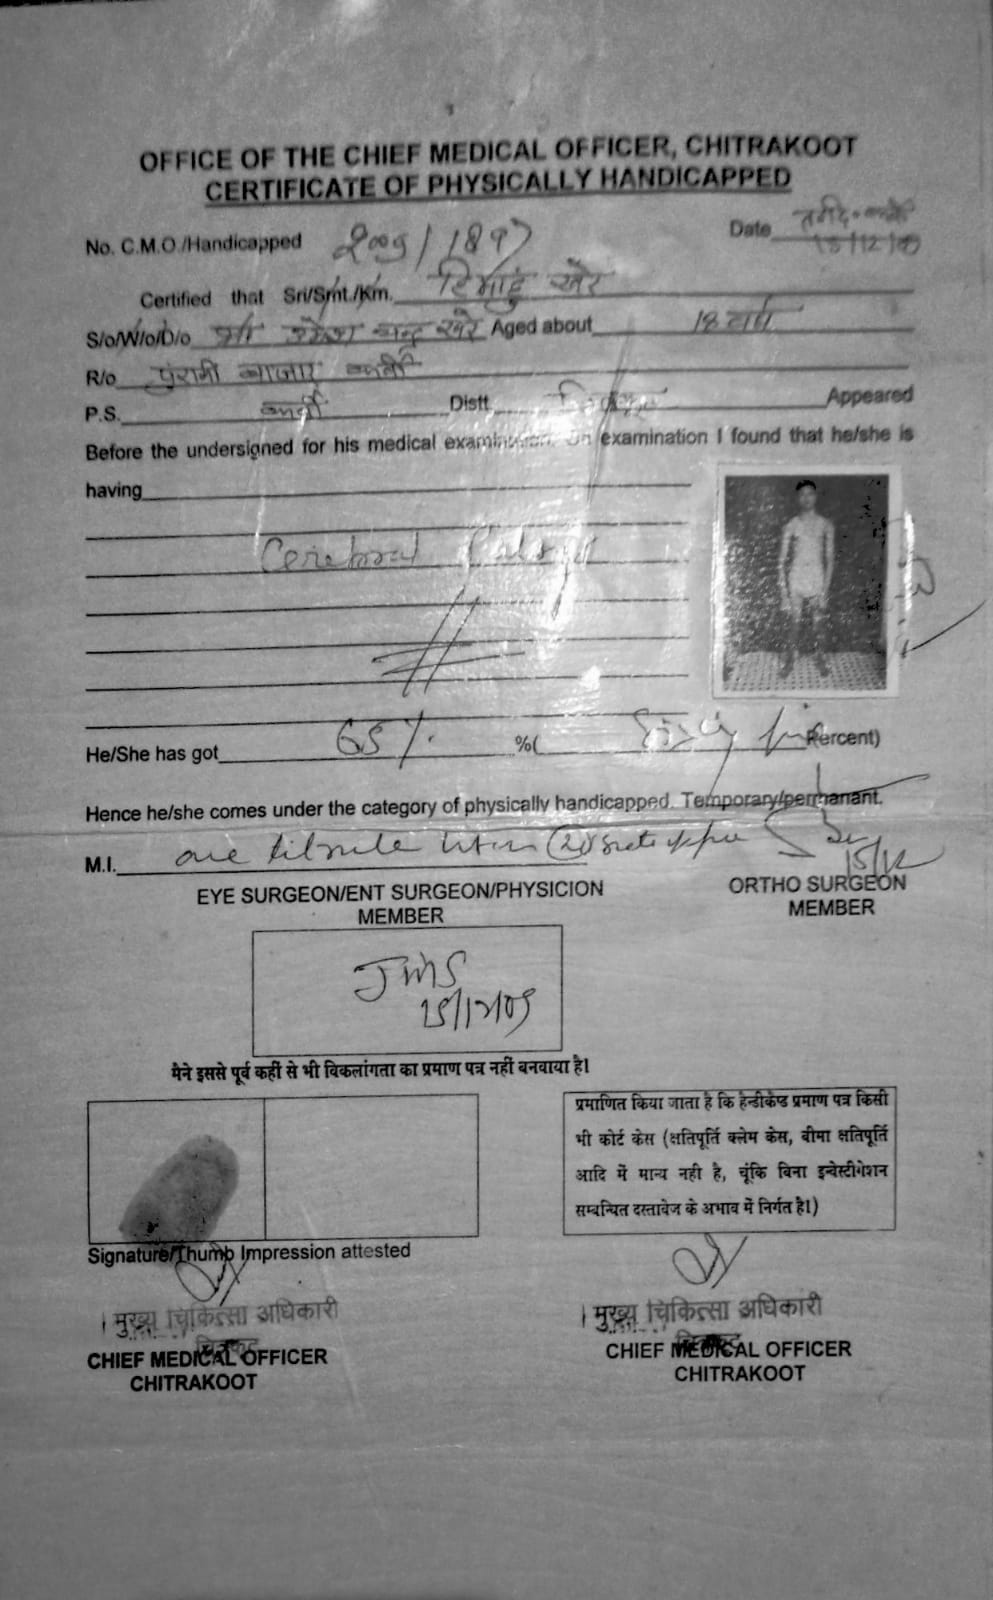 OFFICE OF THE CHIEF MEDICAL OFFICER, CHITRAKOOT
CERTIFICATE OF PHYSICALLY HANDICAPPED
No. C.M.O./Handicapped 2009/1897 Date 15/12/09
Certified that Sri/Smt./Km. हिमांशु खरे
S/o/W/o/D/o श्री उमेश चन्द्र खरे Aged about 18 वर्ष
R/o पुरानी बाजार कर्वी
P.S. कर्वी Distt. चित्रकूट Appeared
Before the undersigned for his medical examination. On examination I found that he/she is
having
Cerebral Palsy
He/She has got 65% %( Sixty five Percent)
Hence he/she comes under the category of physically handicapped. Temporary/permanant.
M.I. one
15/12
EYE SURGEON/ENT SURGEON/PHYSICION
MEMBER
ORTHO SURGEON
MEMBER
15/12/09
मैने इससे पूर्व कहीं से भी विकलांगता का प्रमाण पत्र नहीं बनवाया है।
प्रमाणित किया जाता है कि हैन्डीकैप्ड प्रमाण पत्र किसी
भी कोर्ट केस (क्षतिपूर्ति क्लेम केस, बीमा क्षतिपूर्ति
आदि में मान्य नही है, चूंकि बिना इन्वेस्टीगेशन
सम्बन्धित दस्तावेज के अभाव में निर्गत है।)
Signature/Thumb Impression attested
मुख्य चिकित्सा अधिकारी
चित्रकूट
CHIEF MEDICAL OFFICER
CHITRAKOOT
मुख्य चिकित्सा अधिकारी
चित्रकूट
CHIEF MEDICAL OFFICER
CHITRAKOOT